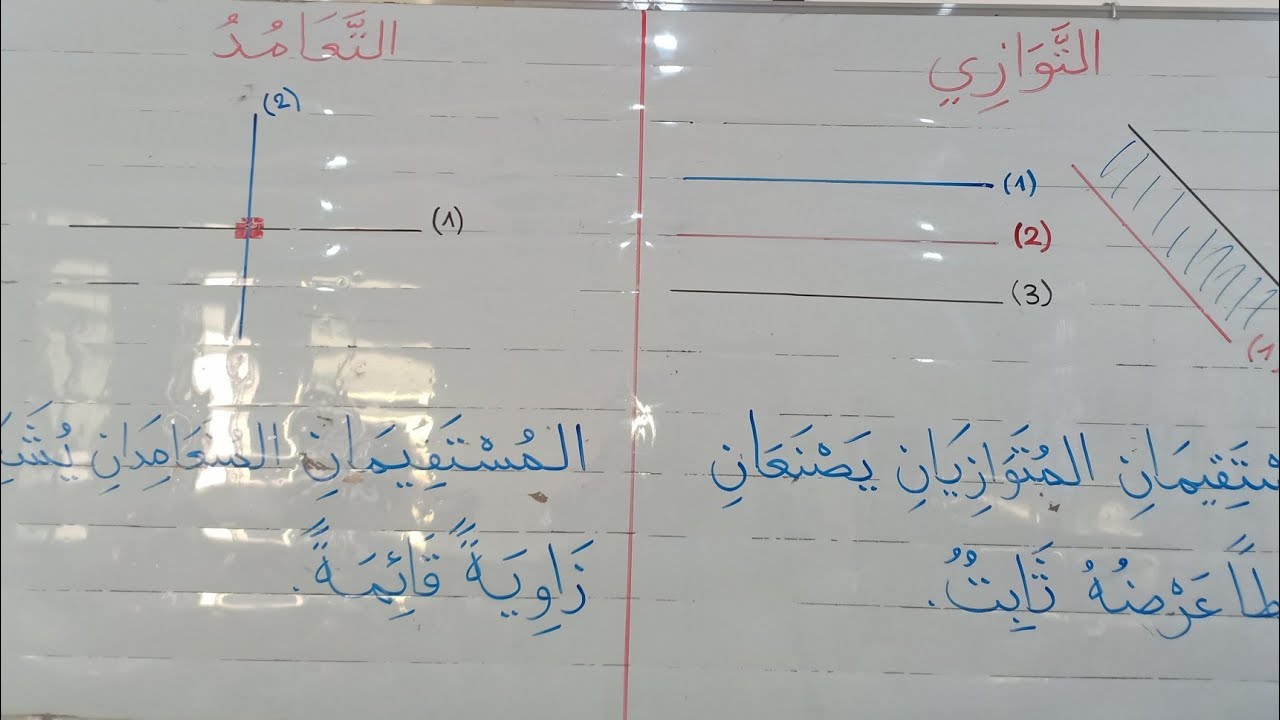 التَّوَازِي
(1)
(2)
(3)
(1
المُتَوَازِيَانِ يَصْنَعَانِ
عَرْضُهُ ثَابِتٌ.
التَّعَامُدُ
(2)
(1)
المُسْتَقِيمَانِ المُتَعَامِدَانِ
زَاوِيَةً قَائِمَةً.